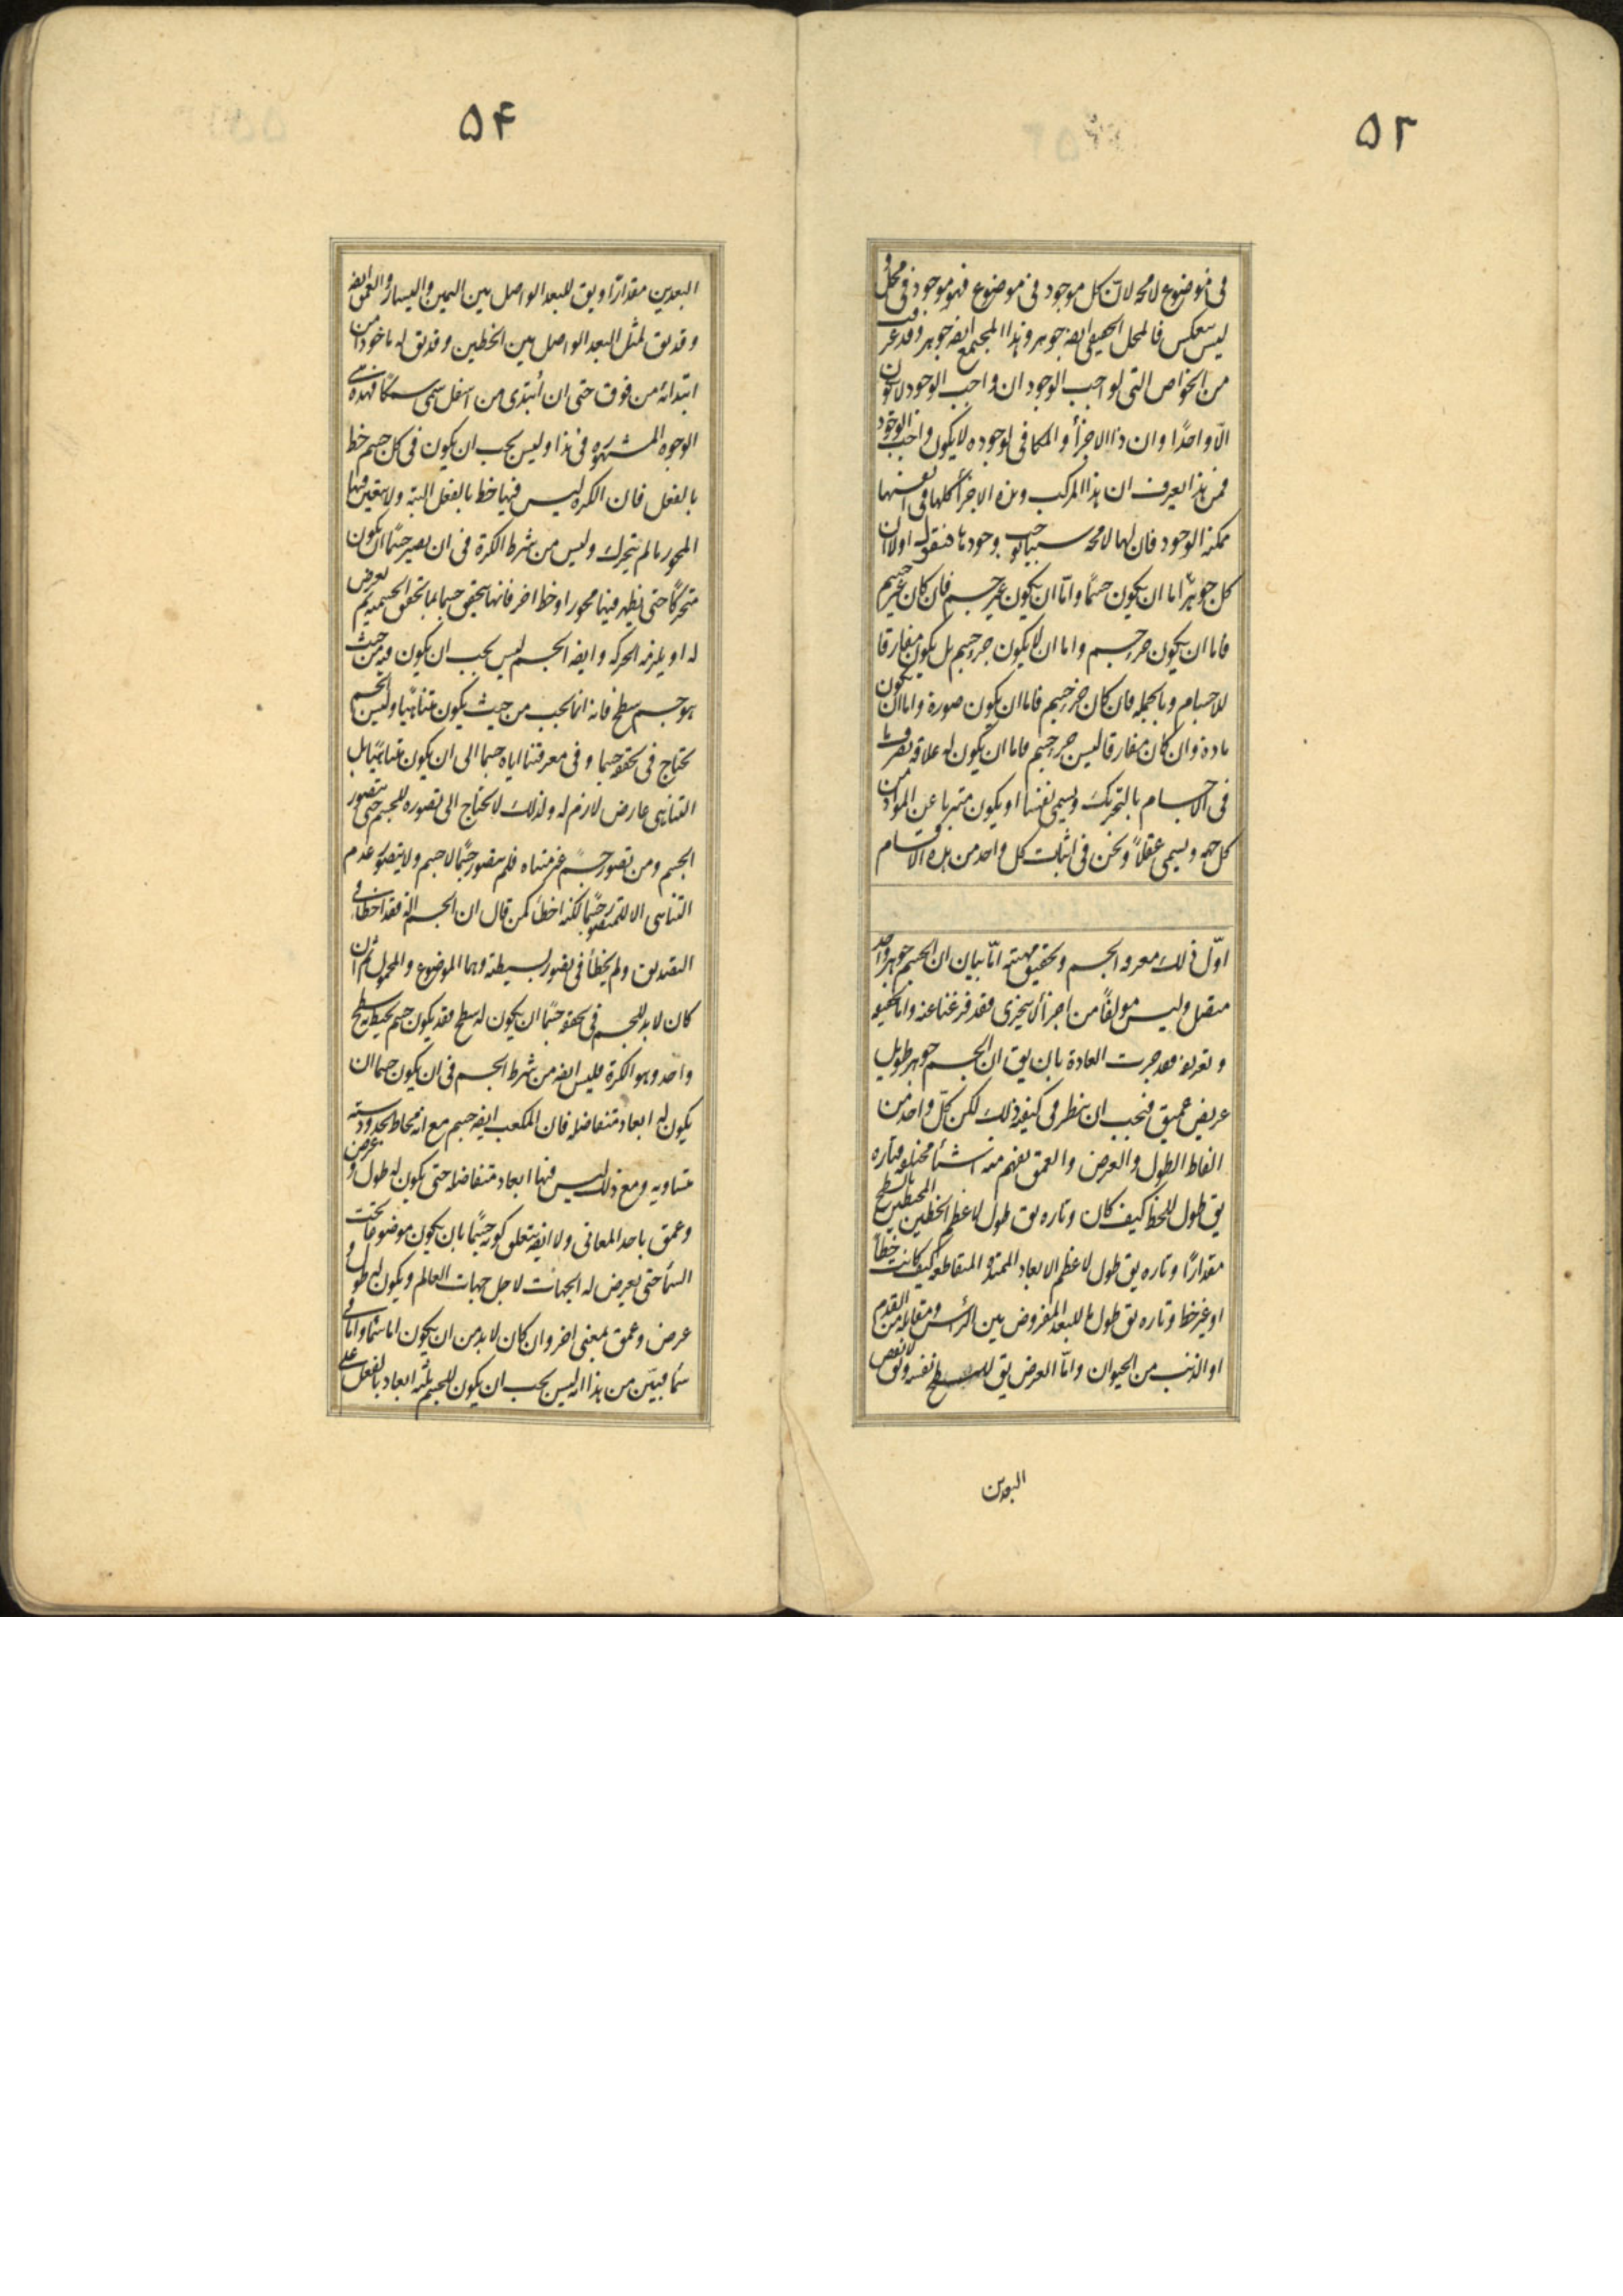 ۵۳
فی موضوع لا محه لان كل موجود فی موضوع فهو موجود فی محل و
لیس ینعكس فالمحل الحقیقی ایضه جوهر و هذا المجتمع ایضه جوهر و قد عرفت
من الخواص التی لواجب الوجود ان واجب الوجود لا یكون
الّا واحدًا و ان ذا الاجزأ و المكافی لوجوده لا یكون واجب الوجود
فمن هذا یعرف ان هذا المركب و هذه الاجزأ كلها فی انفسها
ممكنة الوجود فان لها لا محه سببا یوجب وجودها فنقول اولا ان
كل جوهر اما ان یكون جسمًا و امّا ان یكون غیر جسم فان كان غیر جسم
فاما ان یكون جزء جسم و اما ان لا یكون جزء جسم بل یكون مفارقا
للاجسام و بالجمله فان كان جزء جسم فاما ان یكون صورة و اما ان یكون
مادة و ان كان مفارقا لیس جزء جسم فاما ان یكون له علاقه تصرف ما
فی الاجسام بالتحریك و یسمی نفسا او یكون متبریا عن المواد من
كل جهه و یسمی عقلاً و نحن فی اثبات كل واحد من هذه الاقسام
اوّل ذلك معرفه الجسم و تحقیق مهیته امّا بیان ان الجسم جوهر واحد
متصل و لیس مولفًا من اجزأ لا یتجزی فقد فرغنا عنه و اما تحقیقه
و تعریفه فقد جرت العادة بان یق ان الجسم جوهر طویل
عریض عمیق فیجب ان ینظر فی كیفیه ذلك لكن كلّ واحد من
الفاظ الطول و العرض و العمق یفهم منه اشیأ مختلفه فتاره
یق طول للخط كیف كان و تاره یق طول لاعظم الخطین المحیطین بالسطح
مقدارًا و تاره یق طول لاعظم الابعاد الممتدة المتقاطعه كیف كانت خطًا
او غیر خط و تاره یق طول للبعد المفروض بین الرأس و مقابله من القدم
او الذنب من الحیوان و امّا العرض یق للسطح نفسه و یق لانقص
البعدین
۵۴
البعدین مقدارًا و یق للبعد الواصل بین الیمین و الیسار و العمق ایضه
و قد یق لمثل البعد الواصل بین الخطین و قد یق له ماخوذا من
ابتدائه من فوق حتی ان أبتدی من اسفل سمی سمكًا فهذه هی
الوجوه المشهوره فی هذا و لیس یجب ان یكون فی كل جسم خط
بالفعل فان الكره لیس فیها خط بالفعل البته و لا یتعین فیها
المحور ما لم یتحرك و لیس من شرط الكرة فی ان یصیر جسمًا ان یكون
متحركًا حتی یظهر فیها محور او خط اخر فانها یتحقق جسما بما یتحقق الجسمیه ثم یعرض
له او یلزمه الحركه و ایضه الجسم لیس یجب ان یكون فیه من حیث
هو جسم سطح فانه انما یجب من حیث یكون متناهیًا و لیس الجسم
یحتاج فی تحققه جسما و فی معرفتنا ایاه جسما الی ان یكون متناهیًا بل
التناهی عارض لازم له و لذلك لا یحتاج الی تصوره للجسم حتی یتصور
الجسم و من تصور جسمًا غیر متناه فلم یتصور جسمًا لا جسم و لا یتصور عدم
التناهی الا للمتصور جسمًا لكنه اخطأ كمن قال ان الجسم الة فقد اخطأ فی
التصدیق و لم یخطأ فی تصور بسیطیه و هما الموضوع و المحمول ثم ان
كان لا بد للجسم فی تحققه جسمًا ان یكون له سطح فقد یكون جسم یحیط به سطح
واحد و هو الكرة فلیس ایضه من شرط الجسم فی ان یكون جسما ان
یكون له ابعاد متفاضله فان المكعب ایضه جسم مع انه محاط بحدود سته
متساویه و مع ذلك لیس فیها ابعاد متفاضله حتی یكون له طول و عرض
و عمق باحد المعانی و لا ایضه یتعلق كونه جسمًا بان یكون موضوعا تحت
السمأ حتی یعرض له الجهات لاجل جهات العالم و یكون له طول و
عرض و عمق بمعنی اخر و ان كان لا بد من ان یكون اما سمأ و اما فی
سمأ فبیّن من هذا انه لیس یجب ان یكون للجسم ثلثه ابعاد بالفعل علی